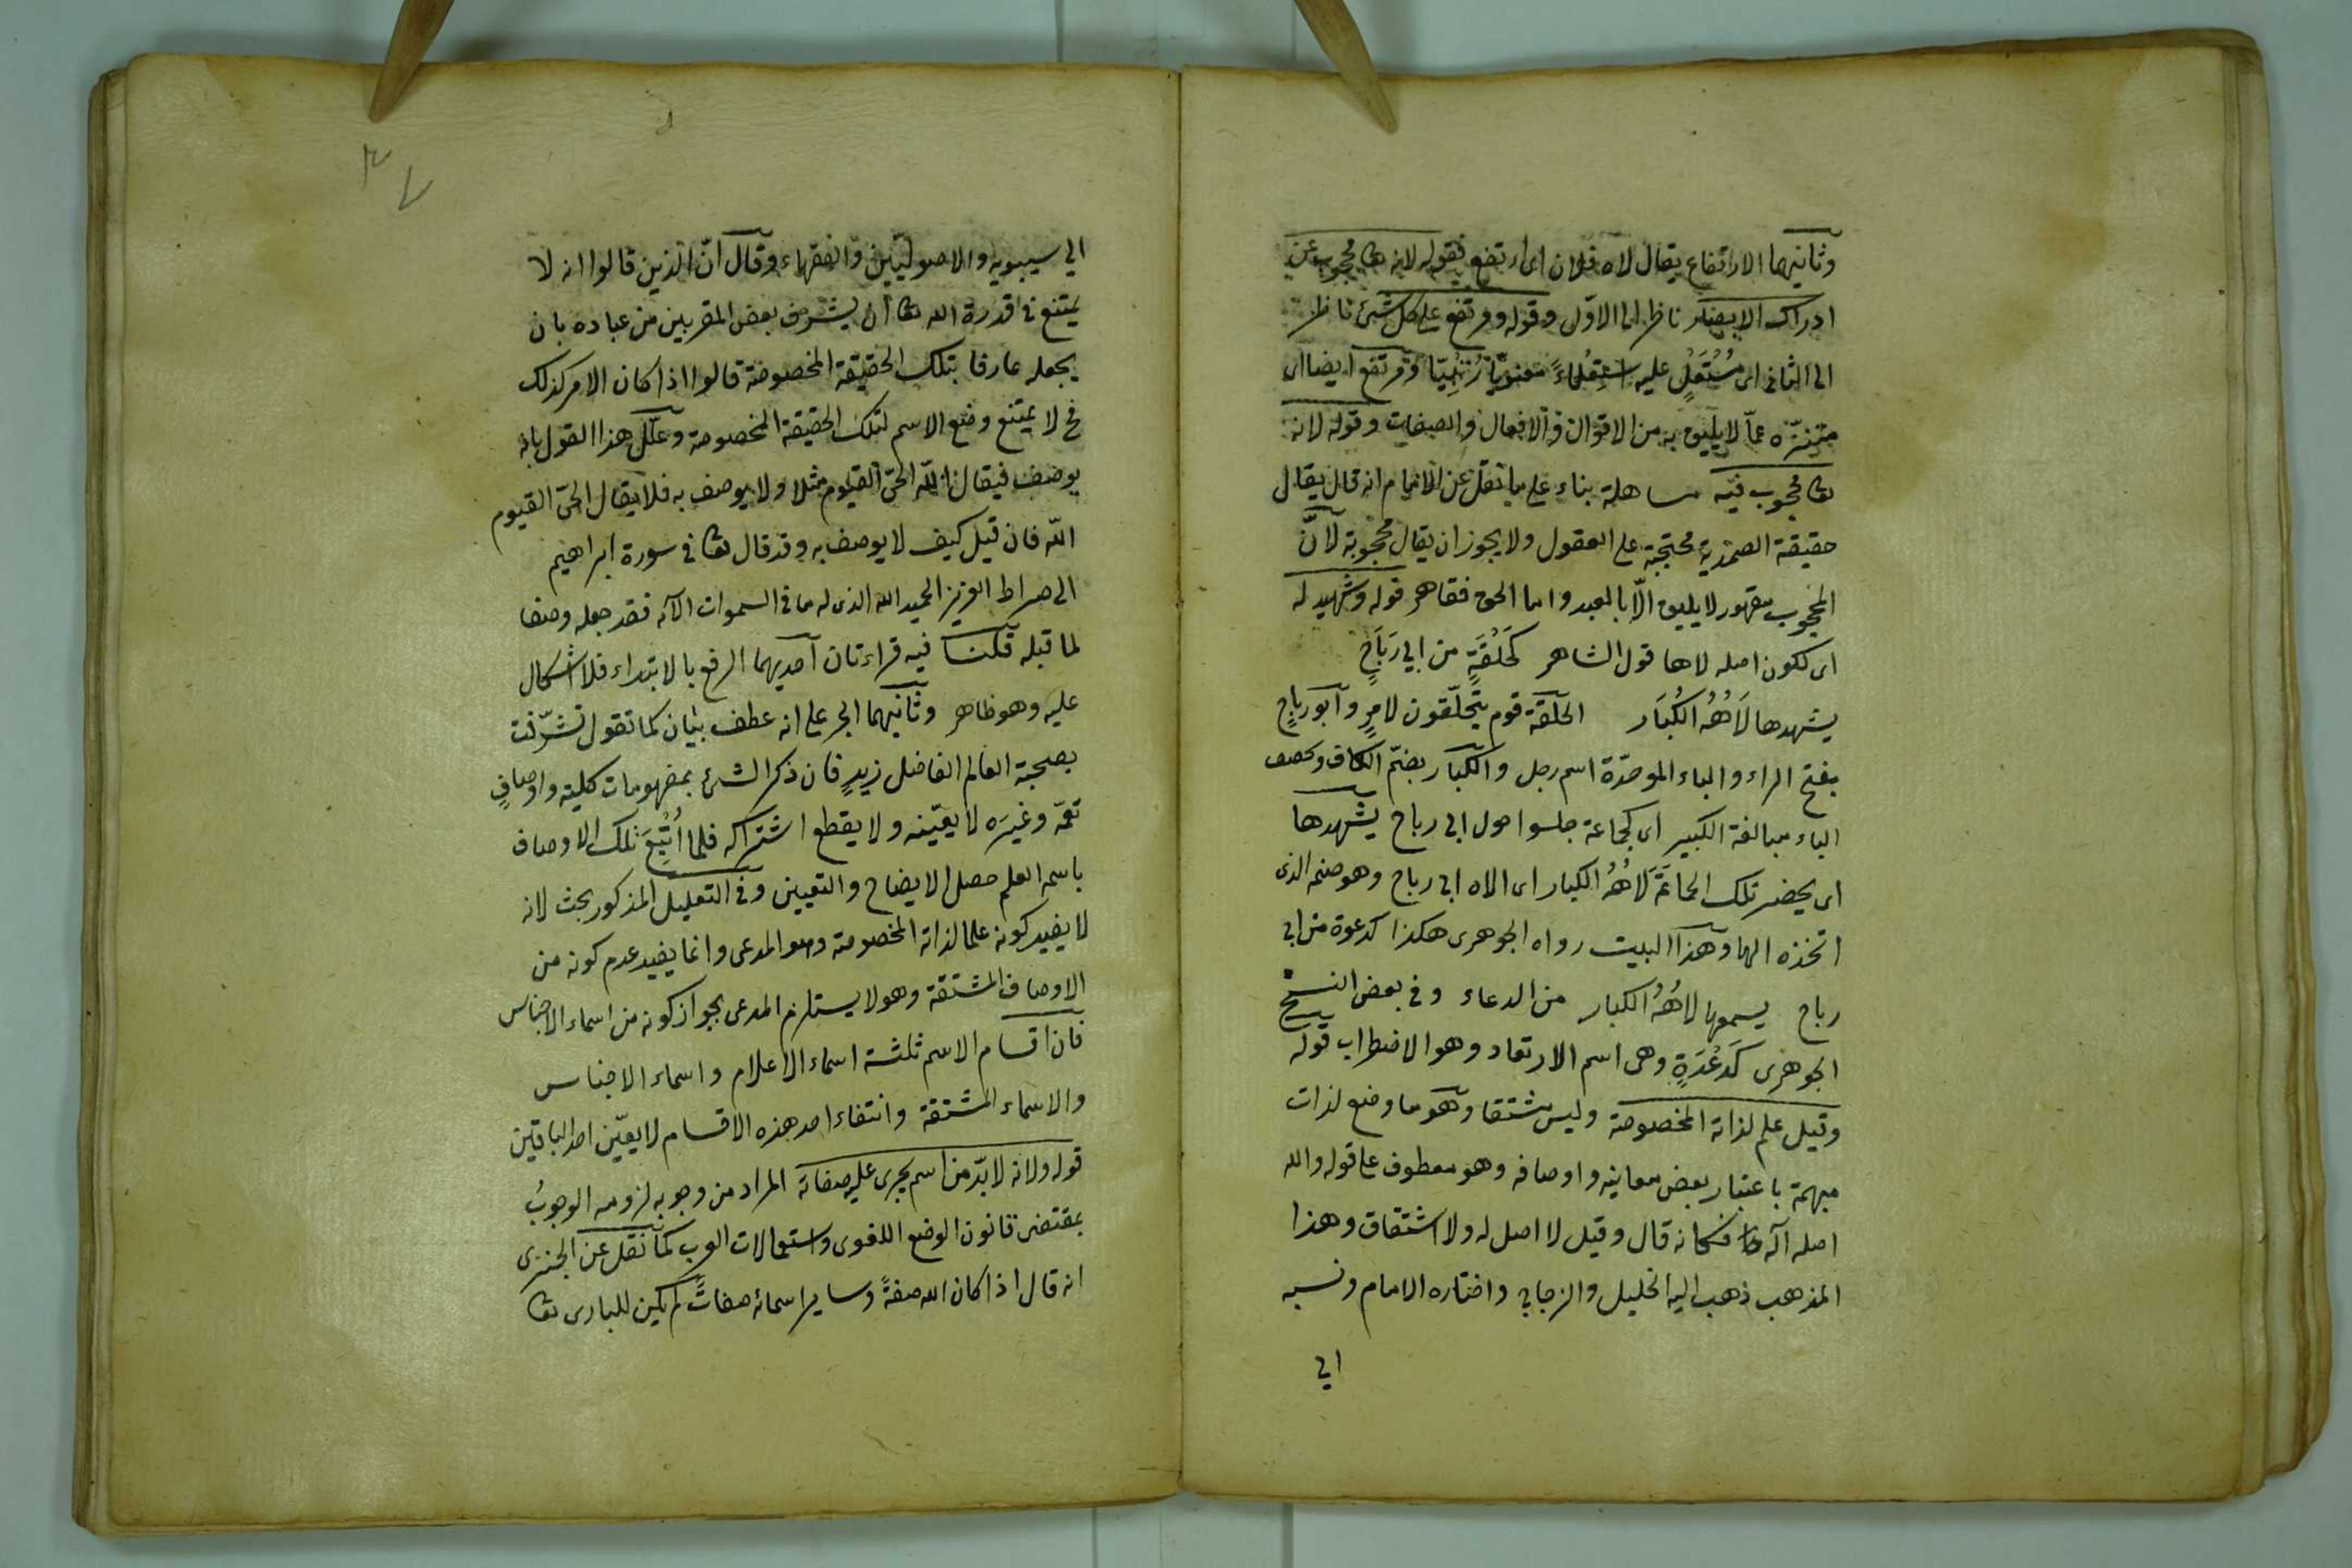 وثانيهما الارتفاع يقال لاه فلان اى ارتفع فقوله لانه تعا محجوب عن
ادراك الابصار ناظر الى الاوّل وقوله ومرتفع على كل شئ ناظر
الى الثانى اى مُسْتَعْلٍ عليه اسْتِعْلاءً معنويّا رُتْبِيّا ومرتفع ايضا اى
متنزّه عمّا لا يليق به من الاقوال والافعال والصفات وقوله لانه
تعا محجوب فيه مساهلة بناء على ما نقل عن الامام انه قال يقال
حقيقة الصمدية محتجبة على العقول ولا يجوز ان يقال محجوبة لانّ
المحجوب مقهور لا يليق الّا بالعبد واما الحق فقاهر قوله وشهيد له
اى لكون اصله لاها قول الشاهر كَحَلْقَةٍ من ابي رَبَاحٍ
يشهدها لَاهُهُ الكُبَار الحلقة قوم يتحلّقون لامرٍ وابو رباحٍ
بفتح الراء والباء الموحدّة اسم رجل والكبار بضمّ الكاف وتخفيف
الباء مبالغة الكبير اى كجماعة جلسوا حول ابى رباح يشهدها
اى يحضر تلك الجماعَةَ لَاهُهُ الكبار اى الاه ابى رباح وهو صنمه الذى
اتخذه الها وهذا البيت رواه الجوهرى هكذا كدعوة من ابى
رباح يسمعها لاهُهُ الكبار من الدعاء وفى بعض النسخ
الجوهرى كَدعْدَةٍ وهى اسم الارتعاد وهو الاضطراب قوله
وقيل علم لذاته المخصوصة وليس مشتقا وهو ما وضع لذات
مبهمة باعتبار بعض معانيه واوصافه وهو معطوف على قوله والله
اصله آله فكانه قال وقيل لا اصل له ولا اشتقاق وهذا
المذهب ذهب اليه الخليل والزجاج واختاره الامام ونسبه
الي
الي سيبويه والاصوليّين والفقهاء وقال انّ الذين قالوا انه لا
يمتنع فى قدرة الله تعا ان يشرف بعض المقربين من عباده بان
يجعله عارفا بتلك الحقيقة المخصوصة قالوا اذا كان الامر كذلك
فح لا يمتنع وضع الاسم لتلك الحقيقة المخصوصة وعلّل هذا القول بانه
يوصف فيقال الله الحىّ القيوم مثلا ولا يوصف به فلا يقال الحىّ القيوم
الله فان قيل كيف لا يوصف به وقد قال تعا فى سورة ابراهيم
الى صراط العزيز الحميد الله الذى له ما فى السموات الآية فقد جعله وصفا
لما قبله قلنا فيه قراءتان احديهما الرفع بالابتداء فلا اشكال
عليه وهو ظاهر وثانيهما الجر على انه عطف بيان كما تقول تشرّفت
بصحبة العالم الفاضل زيدٍ فان ذكر الشئ بمفهومات كلية واوصافٍ
تعمّه وغيرَه لا يعيّنه ولا يقطع اشتراكه فلما اُتْبِعَ تلك الاوصاف
باسمه العلم حصل الايضاح والتعيين وفى التعليل المذكور بحث لانه
لا يفيد كونه علما لذاته المخصوصة وهو المدعى وانما يفيد عدم كونه من
الاوصاف المشتقة وهو لا يستلزم المدعى بجواز كونه من اسماء الاجناس
فان اقسام الاسم ثلثة اسماء الاعلام واسماء الاجناس
والاسماء المشتقة وانتفاء احد هذه الاقسام لا يعيّن احد الباقيَين
قوله ولانه لا بدّ من اسم يجرى عليه صفاته المراد من وجوبه لزومه الوجوبُ
بمقتضى قانون الوضع اللغوى واستعمالات العرب كما نقل عن الجنزى
انه قال اذا كان الله صفةً وساير اسمائه صفاتٌ لم يكن للبارى تعا